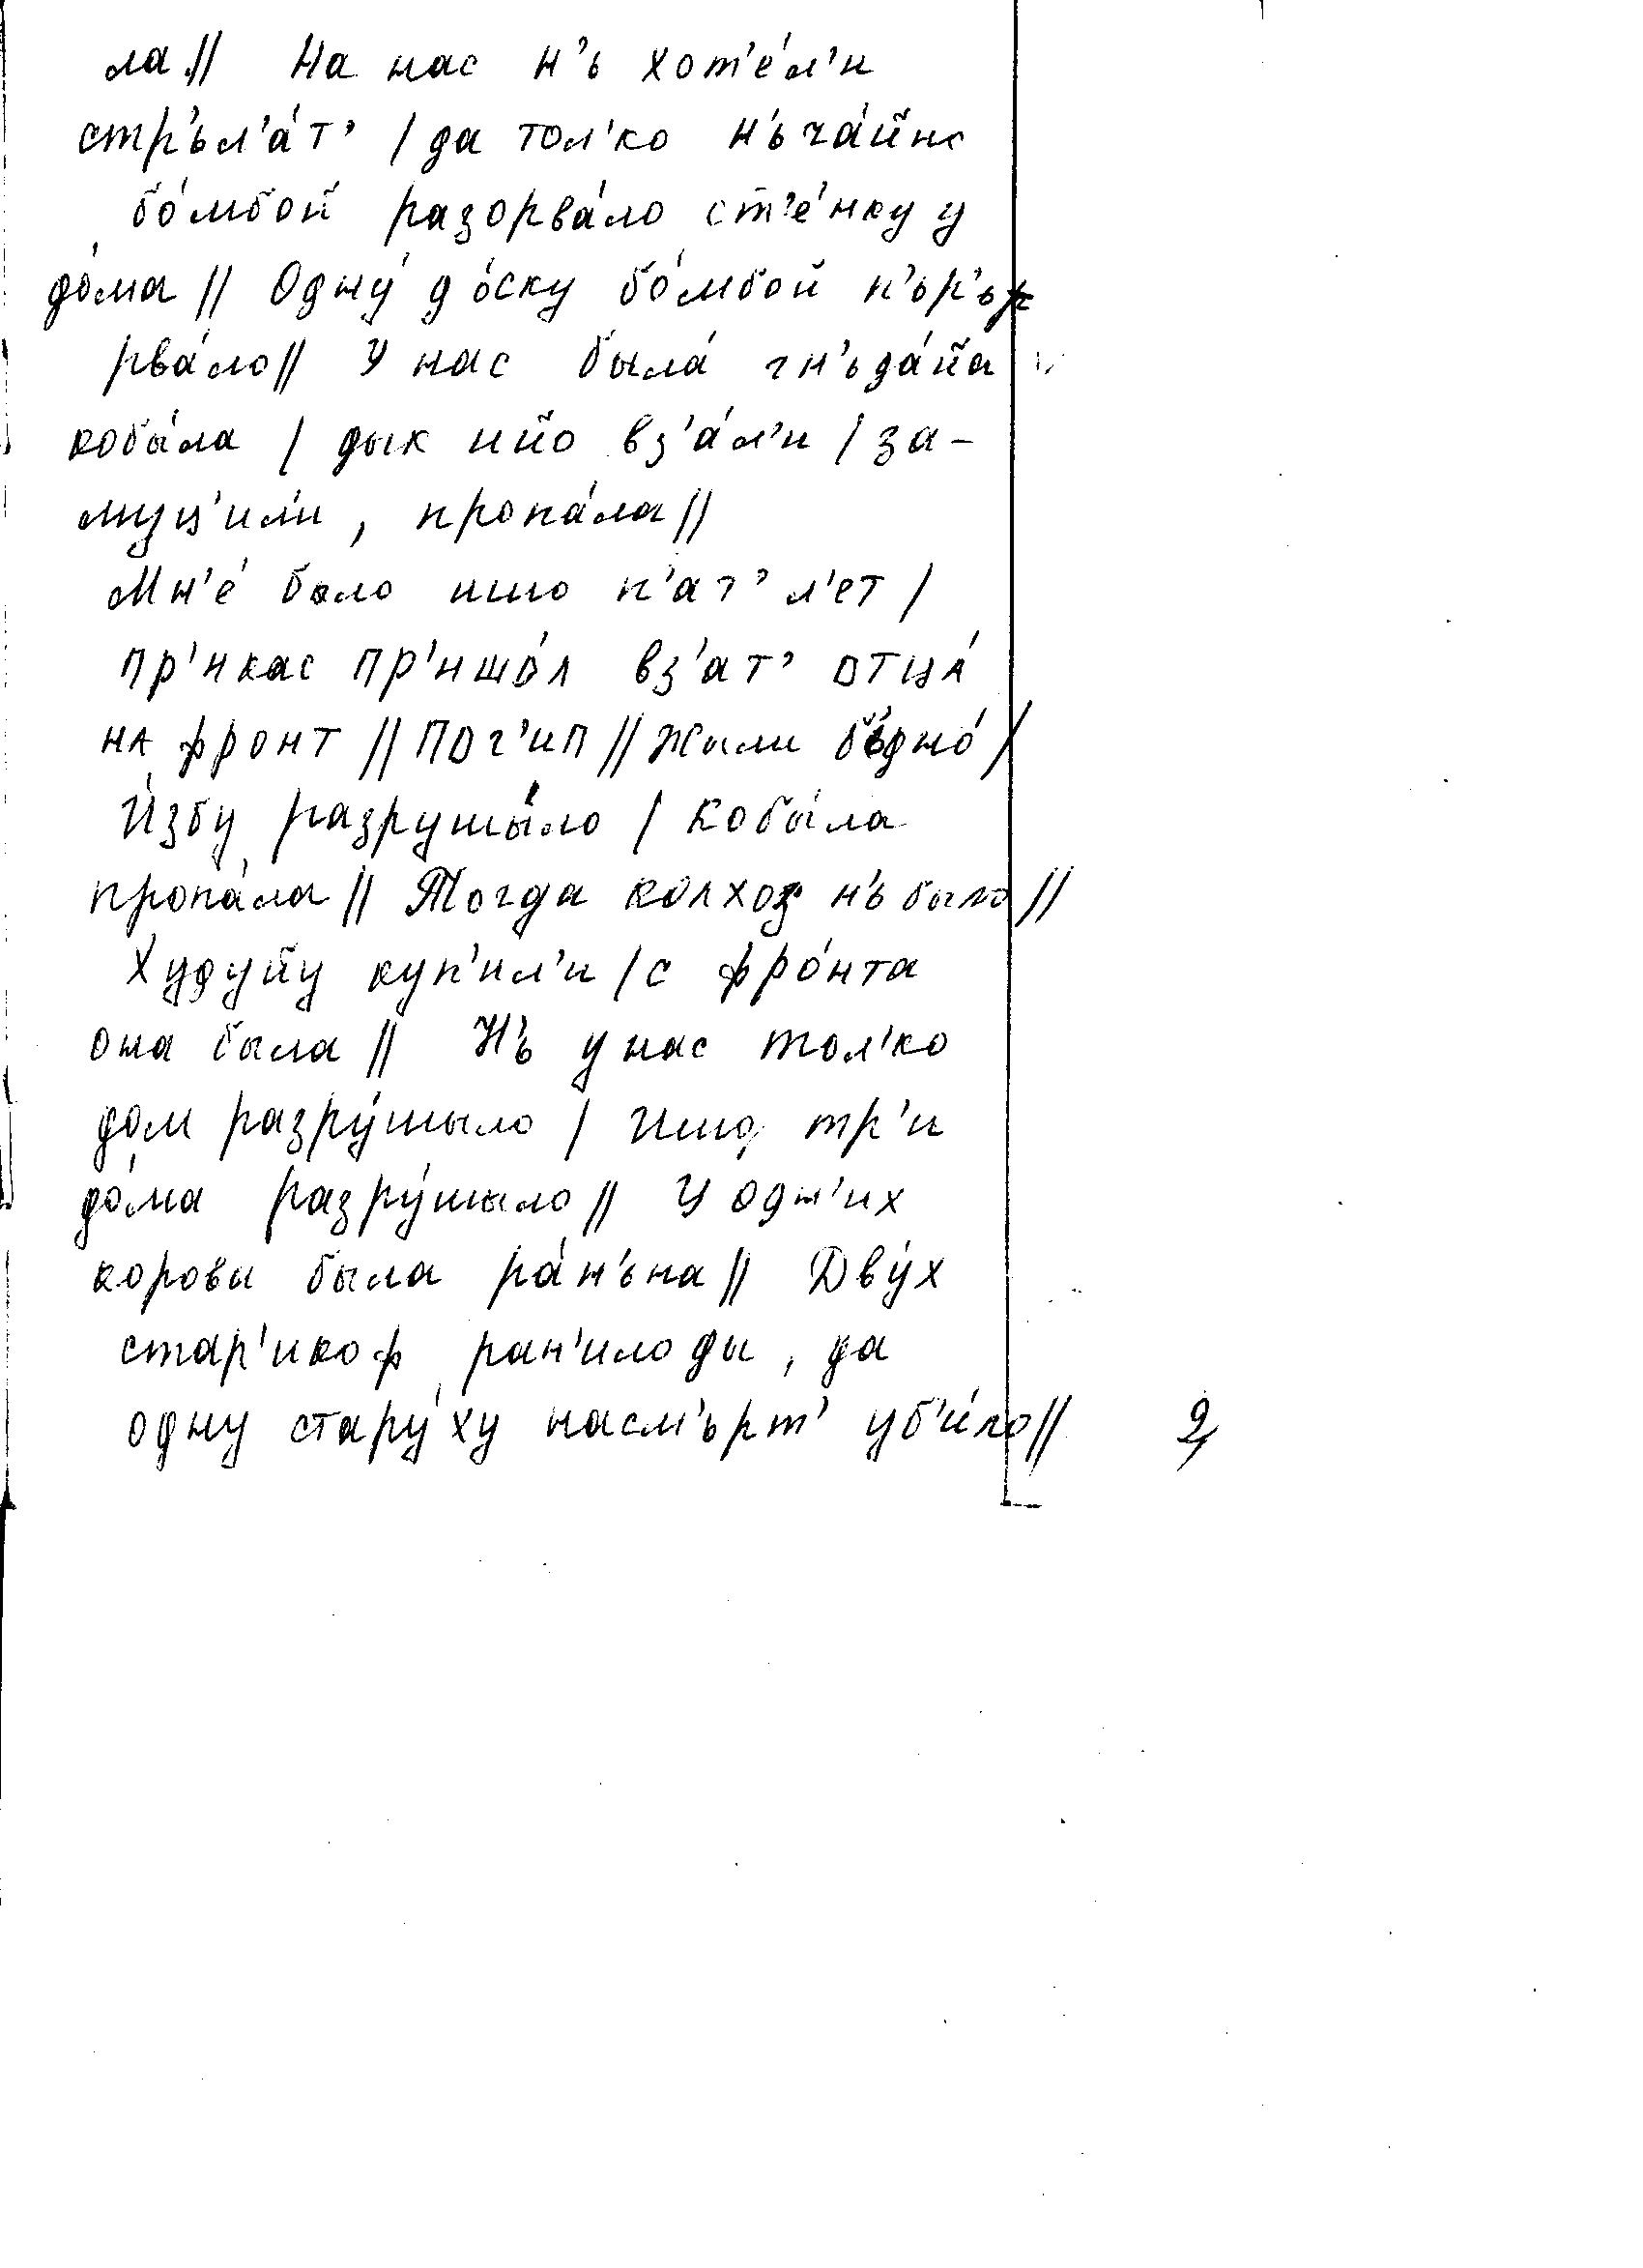 ла // На нас н'ь хот'е́л'и
стр'ьл'а́т' / да тол'ко н'ьча́йно
бо́мбой разорва́ло ст'е́нку у
до́ма // Одну́ до́ску бо́мбой п'ьр'ьр
рва́ло // У нас была́ гн'ьда́йа
кобы́ла / дык ийо вз'а́л'и / за-
муц'или, пропа́ла //
Мн'е́ было ишо п'ат' л'ет /
пр'икас пр'ишо́л вз'ат' отца́
на фронт // Пог'ип // Жыли б'ьдно́ /
И́збу разрушы́ло / кобы́ла
пропа́ла // Тогда колхоз н'ь было //
Худуйу куп'ил'и / с фро́нта
она была // Н'ь у нас тол'ко
дом разру́шыло / ишо тр'и
до́ма разру́шыло // У одн'их
корова была ра́н'ьна // Дву́х
стар'икоф ран'ило ды, да
одну стару́ху насм'ьрт' уб'и́ло // 2